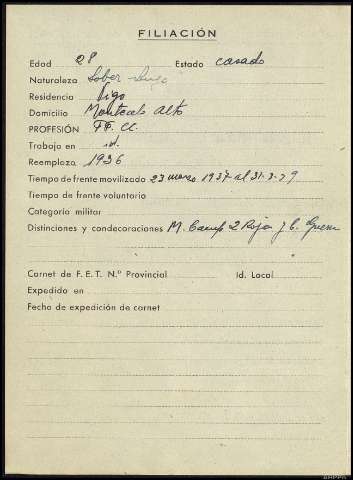 FILIACIÓN
Edad 28 Estado casado
Naturaleza Sober-Lugo
Residencia Vigo
Domicilio Montecelo Alto
PROFESIÓN FF. CC.
Trabaja en id.
Reemplazo 1936
Tiempo de frente movilizado 23 marzo 1937 al 31-3-39
Tiempo de frente voluntario
Categoría militar
Distinciones y condecoraciones M. Camp 2 Rojas y C. Guerra
Carnet de F.E.T. N.º Provincial Id. Local
Expedido en
Fecha de expedición de carnet